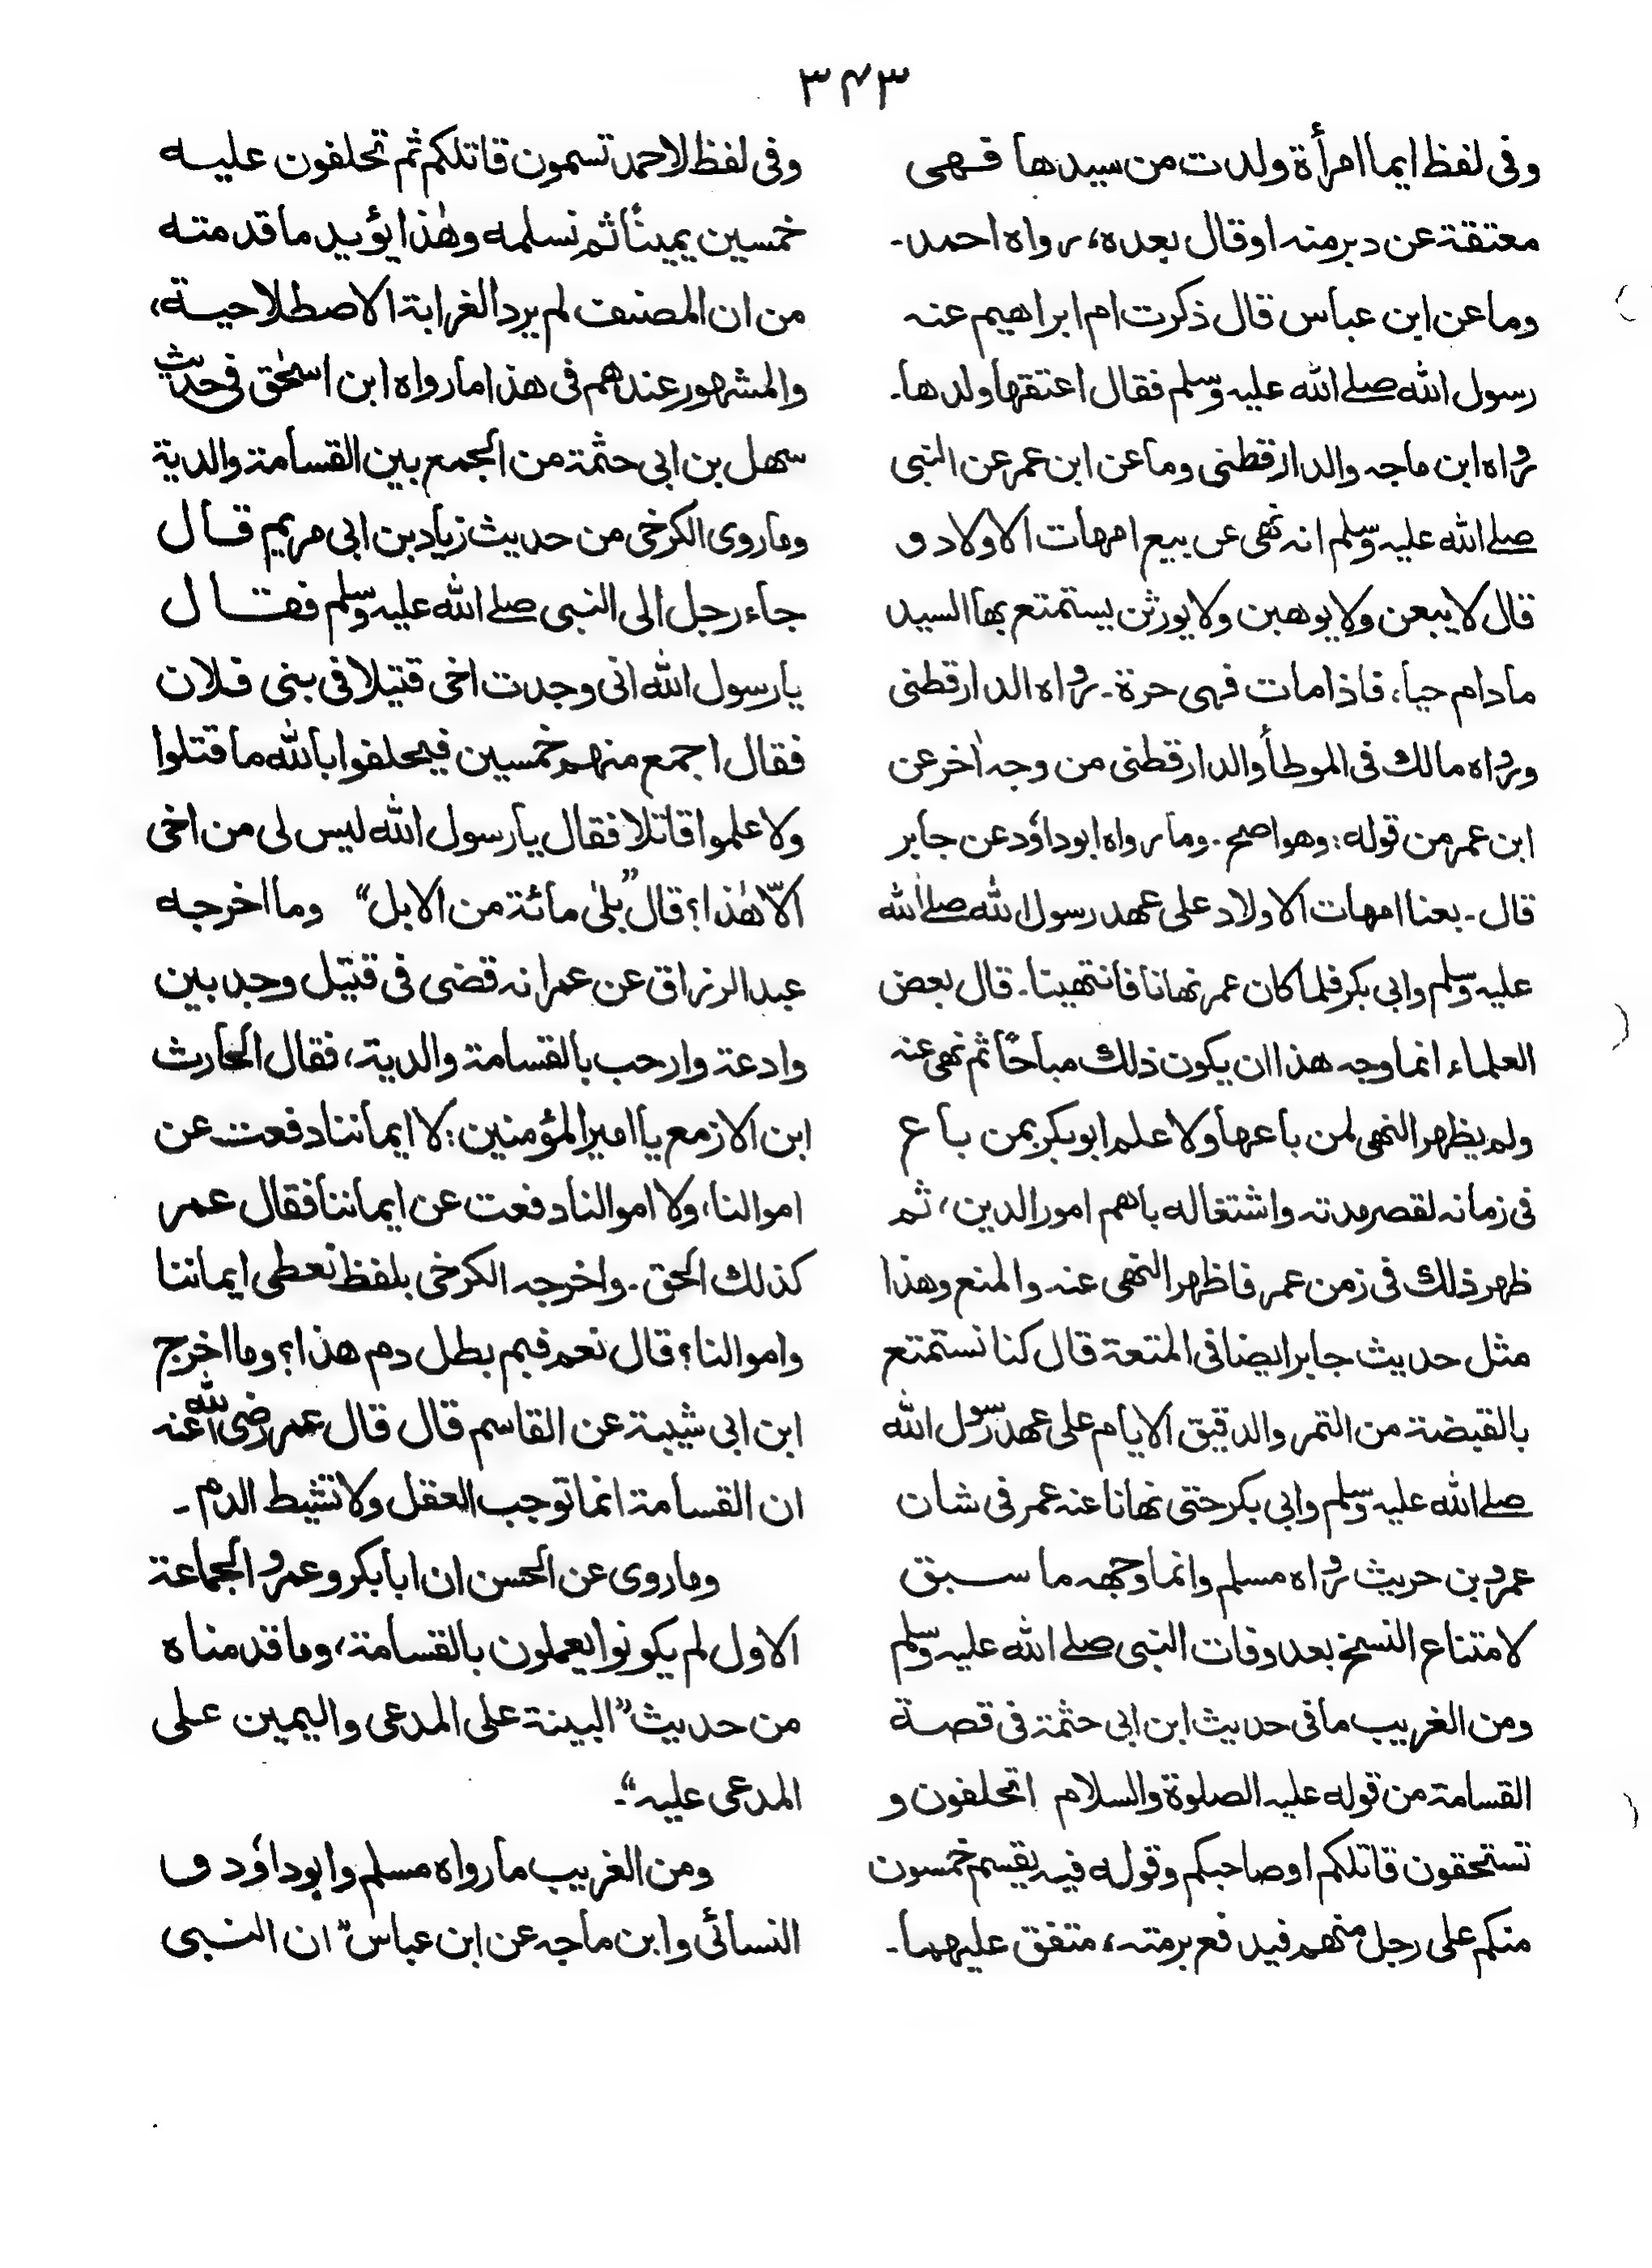 ٣٤٣
وفى لفظ ايما امرأة ولدت من سيدها فهى
معتقة عن دبر منه او قال بعده، رواه احمد۔
وما عن ابن عباس قال ذكرت ام ابراهيم عنه
رسول الله صلے الله عليه وسلم فقال اعتقها ولدها۔
رواه ابن ماجه والدارقطنى وما عن ابن عمر عن النبى
صلے الله عليه وسلم انه نهى عن بيع امهات الاولاد و
قال لا يبعن ولا يوهبن ولا يورثن يستمتع بها السيد
مادام حيا، فاذا مات فهى حرة۔ رواه الدارقطنى
ورواه مالك فى الموطأ والدارقطنى من وجه اٰخر عن
ابن عمر من قوله: وهو اصح۔ وما رواه ابو داؤد عن جابر
قال۔ بعنا امهات الاولاد على عهد رسول الله صلے الله
عليه وسلم وابى بكر فلما كان عمر نهانا فانتهينا۔ قال بعض
العلماء انما وجه هذا ان يكون ذلك مباحًا ثم نهى عنه
ولم يظهر النهى لمن باعها ولا علم ابو بكر بمن باع
فى زمانه لقصر مدته واشتغاله باهم امور الدين، ثم
ظهر ذلك فى زمن عمر فاظهر النهى عنه والمنع وهذا
مثل حديث جابر ايضا فى المتعة قال كنا نستمتع
بالقبضة من التمر والدقيق الايام على عهد رسول الله
صلے الله عليه وسلم وابى بكر حتى نهانا عنه عمر فى شان
عمرو بن حريث رواه مسلم وانما وجهه ما سبق
لامتناع النسخ بعد وفات النبى صلے الله عليه وسلم
ومن الغريب ما فى حديث ابن ابى حثمة فى قصة
القسامة من قوله عليه الصلوة والسلام اتحلفون و
تستحقون قاتلكم او صاحبكم وقوله فيه يقسم خمسون
منكم على رجل منهم فيدفع برمته، متفق عليهما۔
وفى لفظ لاحمد تسمون قاتلكم ثم تحلفون عليه
خمسين يمينًا ثم نسلمه وهٰذا يؤيد ما قدمته
من ان المصنف لم يرد الغرابة الاصطلاحية،
والمشهور عندهم فى هذا ما رواه ابن اسحٰق فى حديث
سهل بن ابى حثمة من الجمع بين القسامة والدية
وما روى الكرخى من حديث زياد بن ابى مريم قال
جاء رجل الى النبى صلے الله عليه وسلم فقال
يا رسول الله انى وجدت اخى قتيلا فى بنى فلان
فقال اجمع منهم خمسين فيحلفوا بالله ما قتلوا
ولا علموا قاتلا فقال يا رسول الله ليس لى من اخى
الاّ هٰذا؟ قال ”بلٰى مائة من الابل“ وما اخرجه
عبد الرزاق عن عمر انه قضى فى قتيل وجد بين
وادعة وارحب بالقسامة والدية، فقال الحارث
ابن الازمع يا امير المؤمنين: لا ايماننا دفعت عن
اموالنا، ولا اموالنا دفعت عن ايماننا فقال عمر
كذلك الحق۔ واخرجه الكرخى بلفظ نعطى ايماننا
واموالنا؟ قال نعم فبم بطل دم هذا؟ وما اخرج
ابن ابى شيبة عن القاسم قال قال عمر رضى الله عنه
ان القسامة انما توجب العقل ولا تشيط الدم۔
وما روى عن الحسن ان ابا بكر وعمر والجماعة
الاول لم يكونوا يعملون بالقسامة، وما قدمناه
من حديث ”البينة على المدعى واليمين على
المدعى عليه“۔
ومن الغريب ما رواه مسلم وابو داؤد و
النسائى وابن ماجه عن ابن عباس ”ان النبى